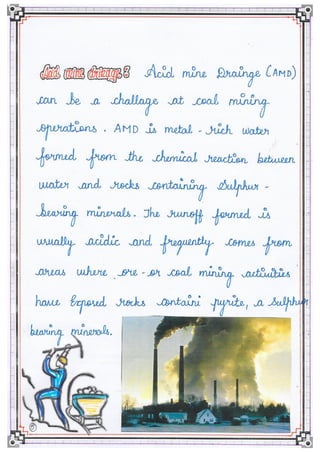 Acid mine drainage : Acid mine Drainge (AMD)
can be a challage at coal mining
operations. AMD is metal - rich water
formed from the chemical reaction between
water and rocks containing Sulphur -
bearing minerals. The runoff formed is
usually acidic and frequently comes from
areas where ore - or coal mining activities
have Exposed rocks containi pyrite, a Sulphur
bearing minerals.